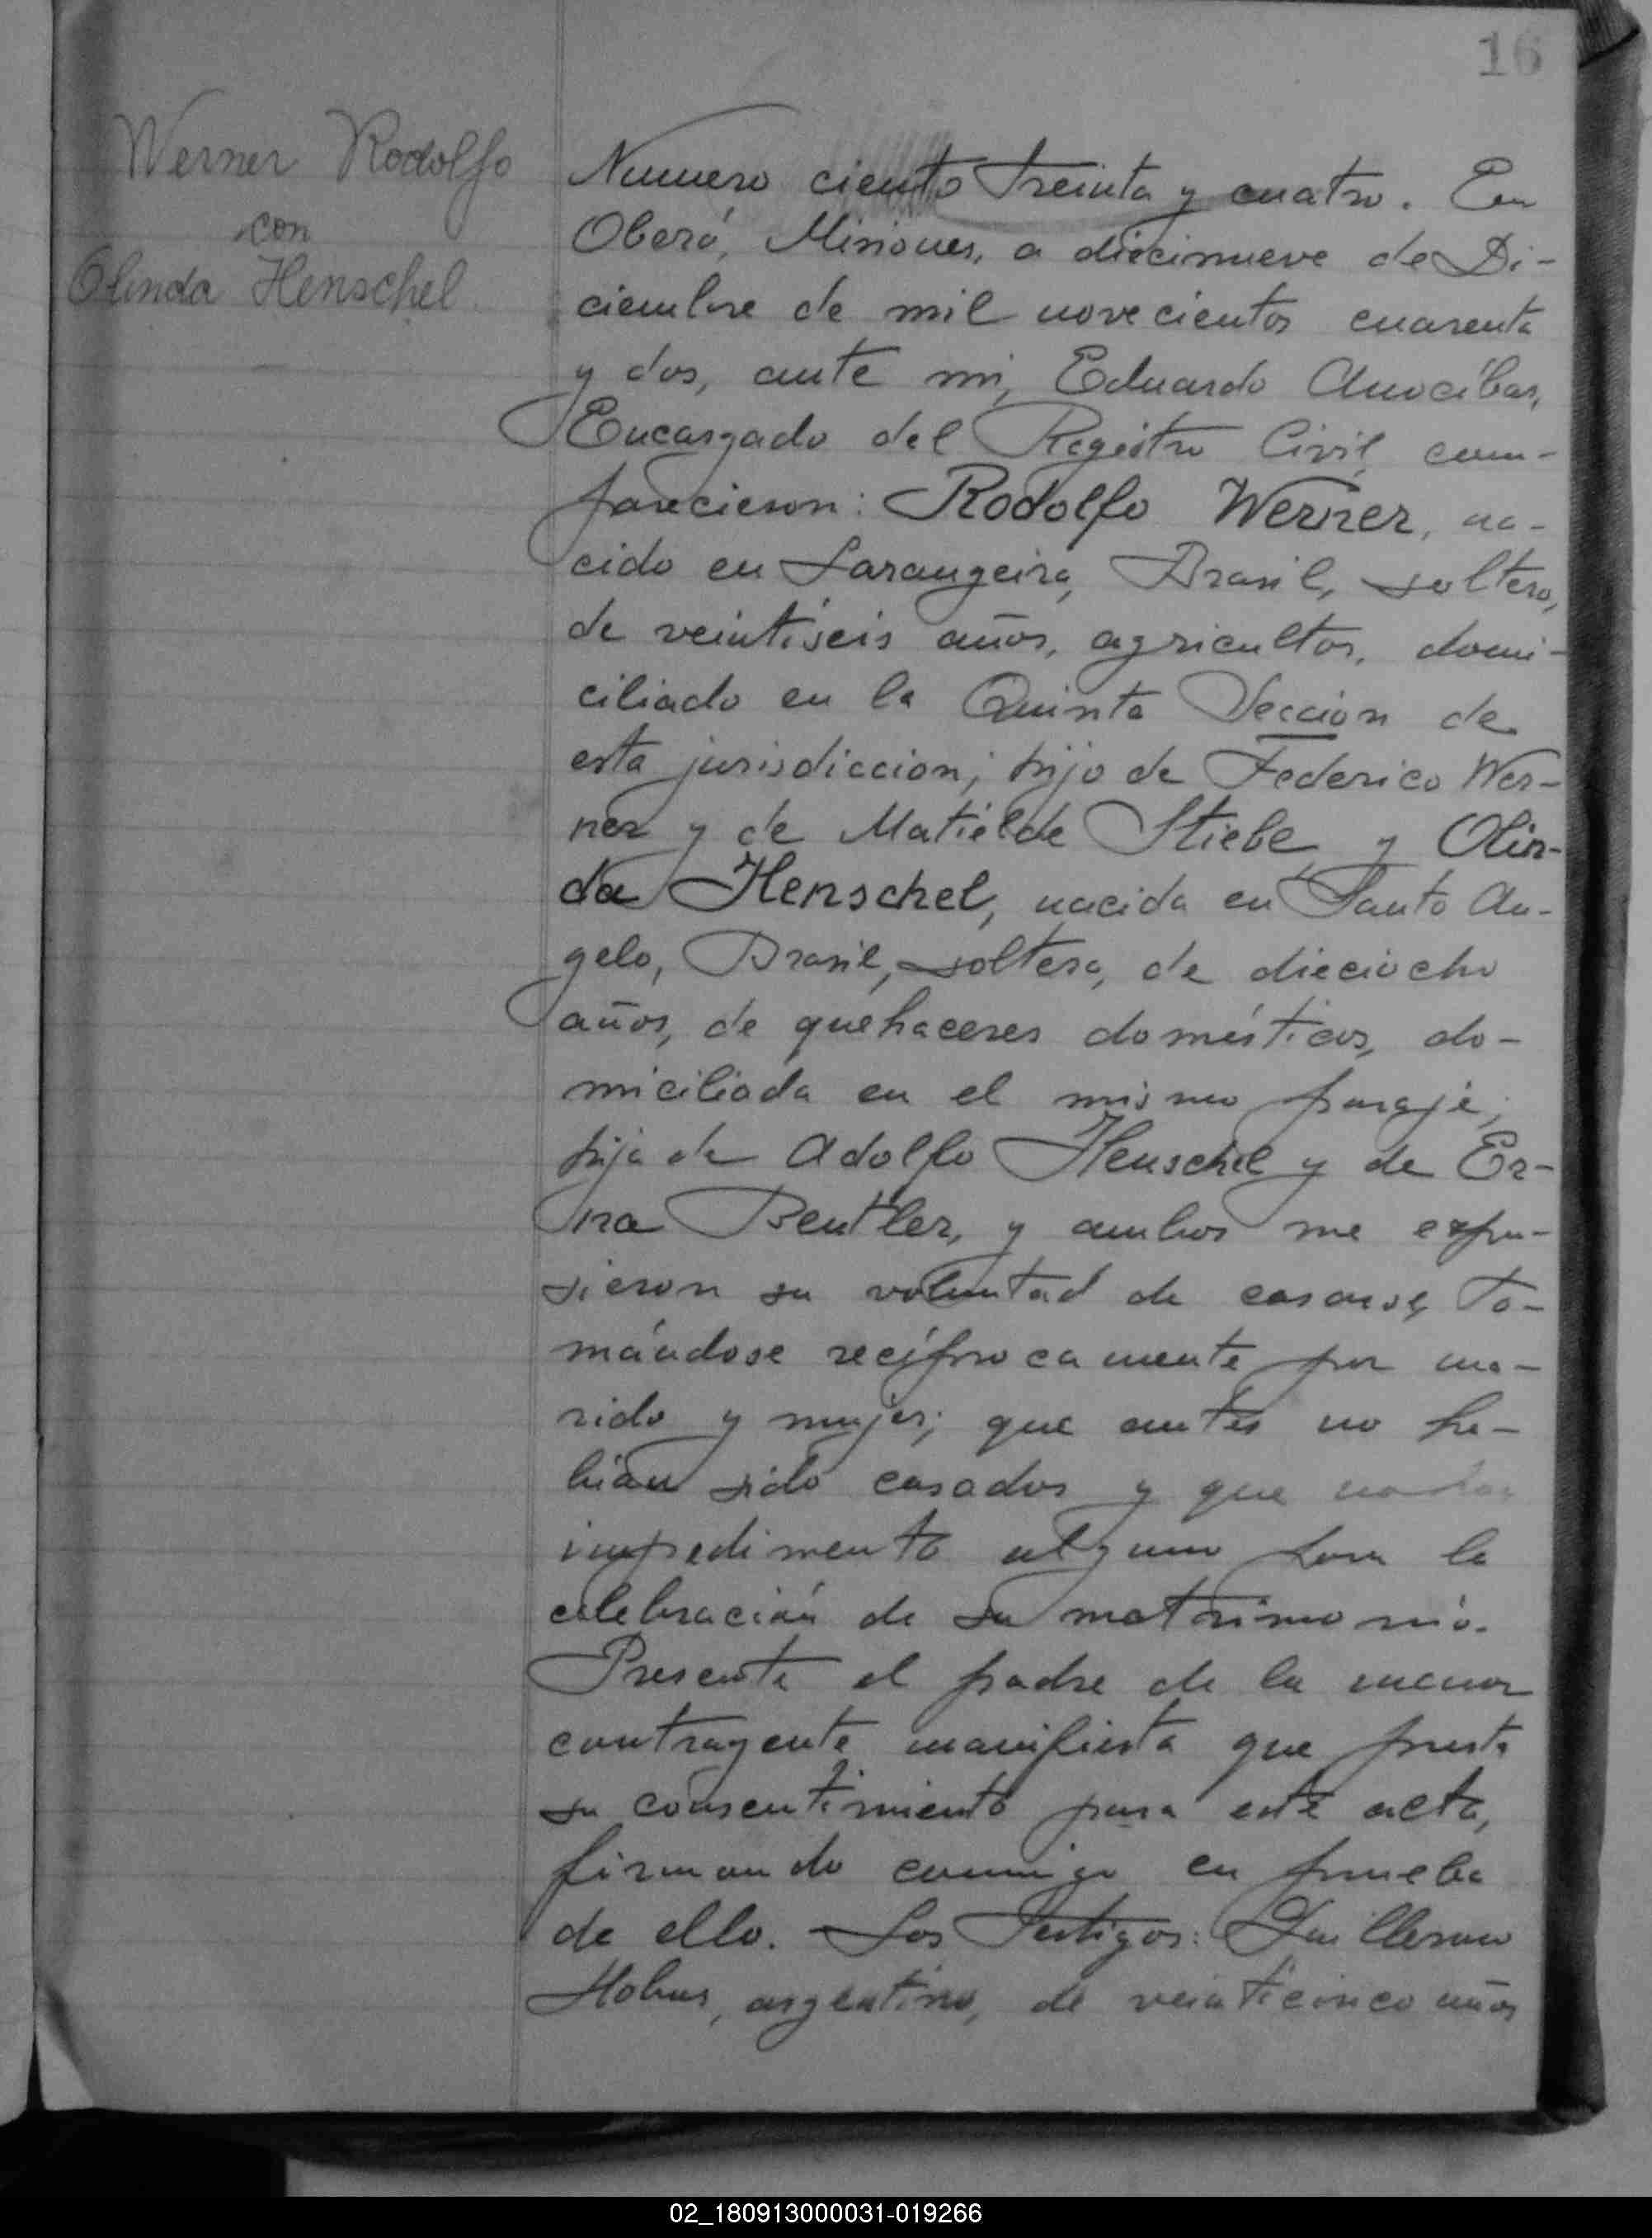 16
Werner Rodolfo
con
Olinda Henschel
Numero ciento treinta y cuatro. En
Oberá, Misiones, a diecinueve de Di-
ciembre de mil novecientos cuarenta
y dos, ante mi, Eduardo Anocíbar,
Encargado del Registro Civil, com-
parecieron: Rodolfo Werner, na-
cido en Larangeira, Brasil, soltero,
de veintiseis años, agricultor, domi-
ciliado en la Quinta Seccion de
esta jurisdiccion; hijo de Federico Wer-
ner y de Matielde Stiebe, y Olin-
da Henschel, nacida en Santo An-
gelo, Brasil, soltera, de dieciocho
años, de quehaceres domésticos, do-
miciliada en el mismo paraje;
hija de Adolfo Henschel y de Er-
na Beutler, y ambos me expu-
sieron su voluntad de casarse, to-
mándose recíprocamente por ma-
rido y mujer; que antes no ha-
bian sido casados y que no hay
impedimento alguno para la
celebración de su matrimonio.
Presente el padre de la menor
contrayente manifiesta que presta
su consentimiento para este acto,
firmando conmigo en prueba
de ello. Los Testigos: Guillermo
Hobus, argentino, de veinticinco años
02_180913000031-019266